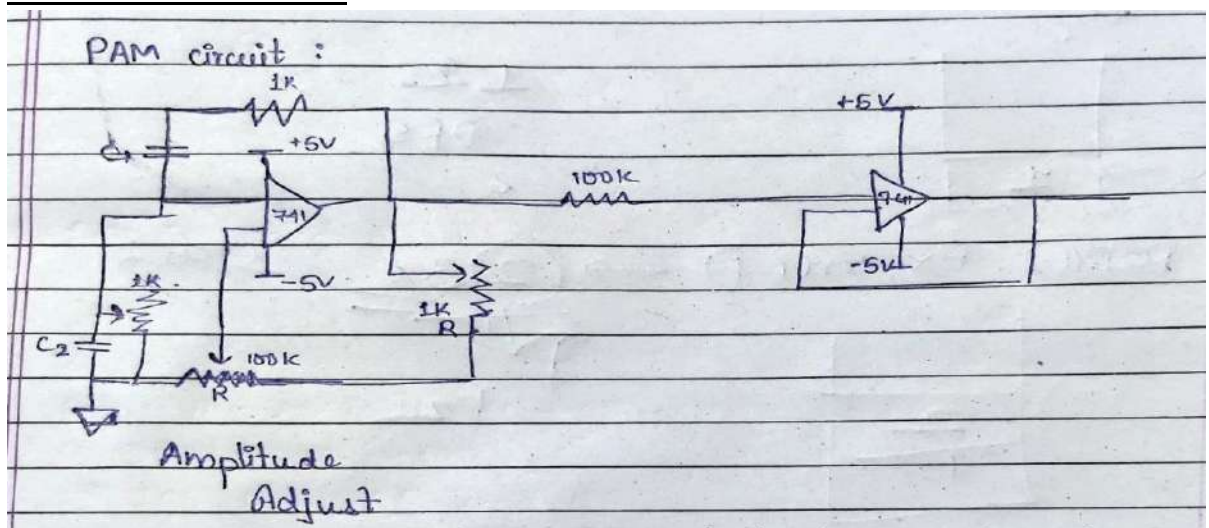 PAM circuit :
1K
+5V
C1
741
-5V
100K
+5V
741
-5V
1K
R
1K
C2
100K
R
Amplitude
Adjust